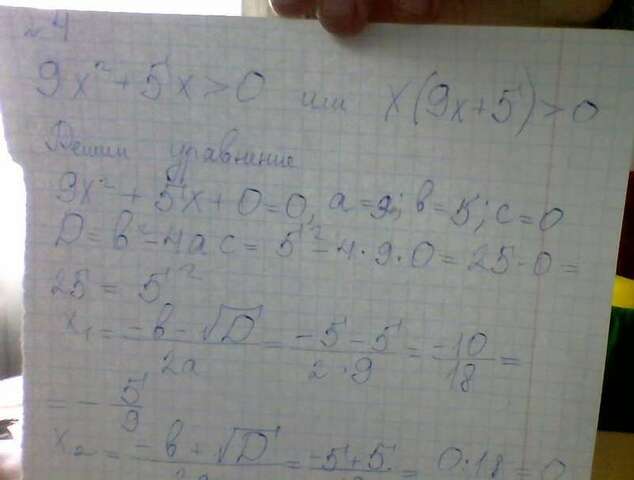 №4
9x² + 5x > 0 или x(9x+5) > 0
Решим уравнение
9x² + 5x + 0 = 0, a = 9; в = 5; c = 0
D = в² - 4ac = 5² - 4·9·0 = 25 - 0 =
25 = 5²
x₁ = (-в - √D)/(2a) = (-5 - 5)/(2·9) = -10/18 =
= - 5/9
x₂ = (-в + √D)/(2a) = (-5+5)/18 = 0:18 = 0